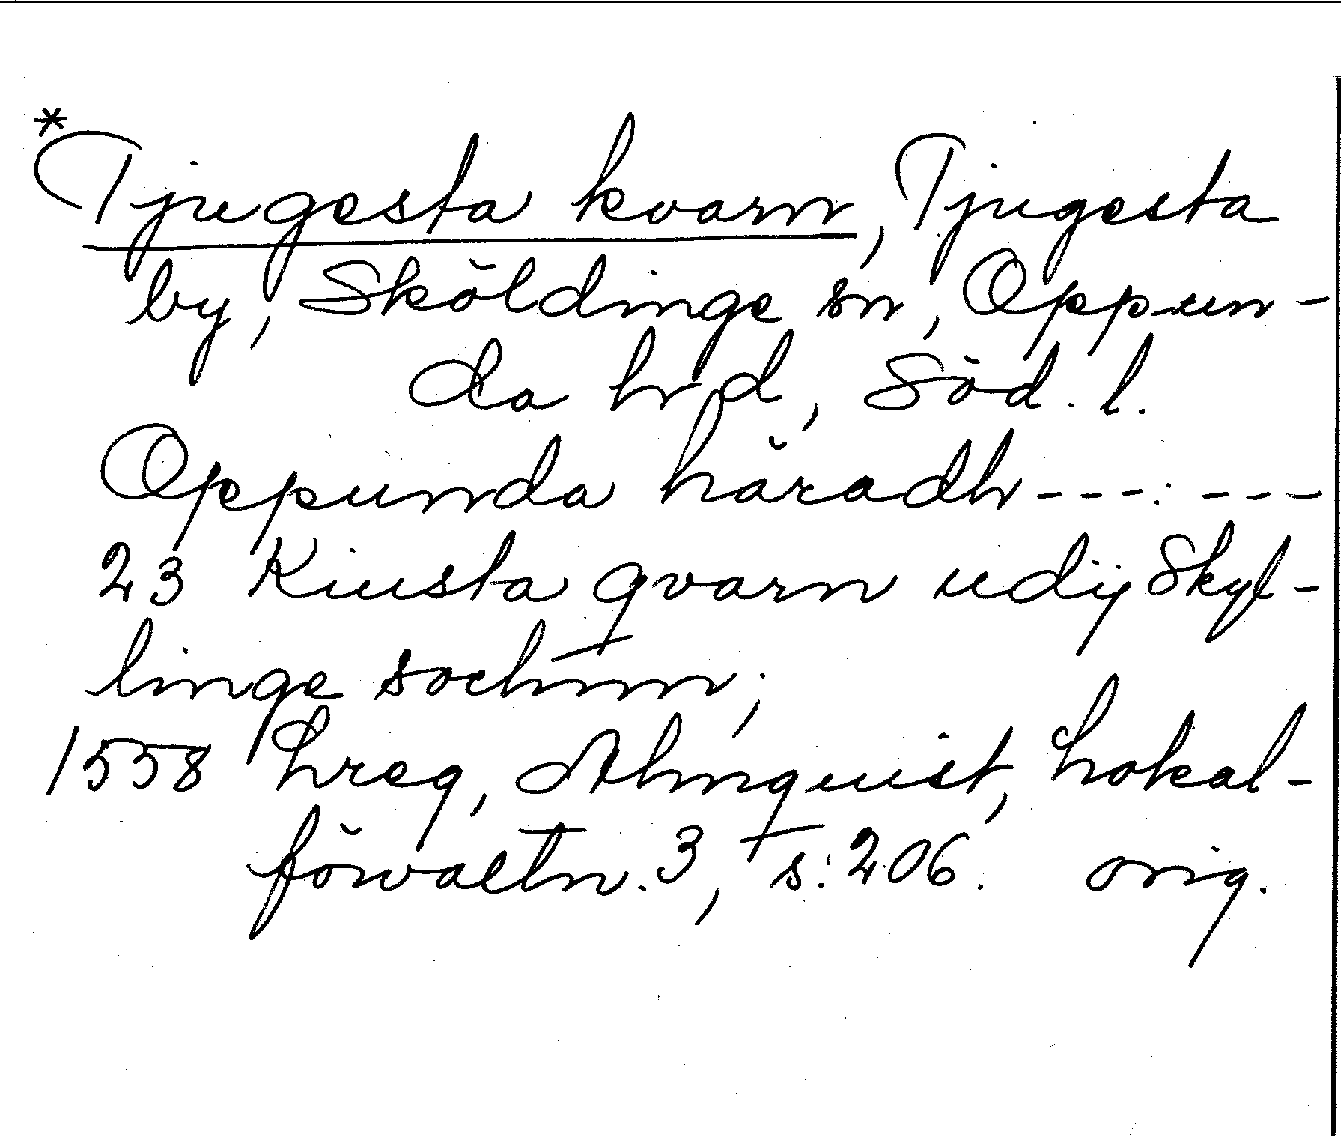 *Tjugesta kvarn, Tjugesta
by, Sköldinge sn, Oppun-
da hrd, Söd. l.
Oppunda häradh ---:---
23 Kiusta qvarn udij Skyl-
linge sochnn;
1558 Lreg, Almquist, Lokal-
förvaltn. 3, s. 206. orig.